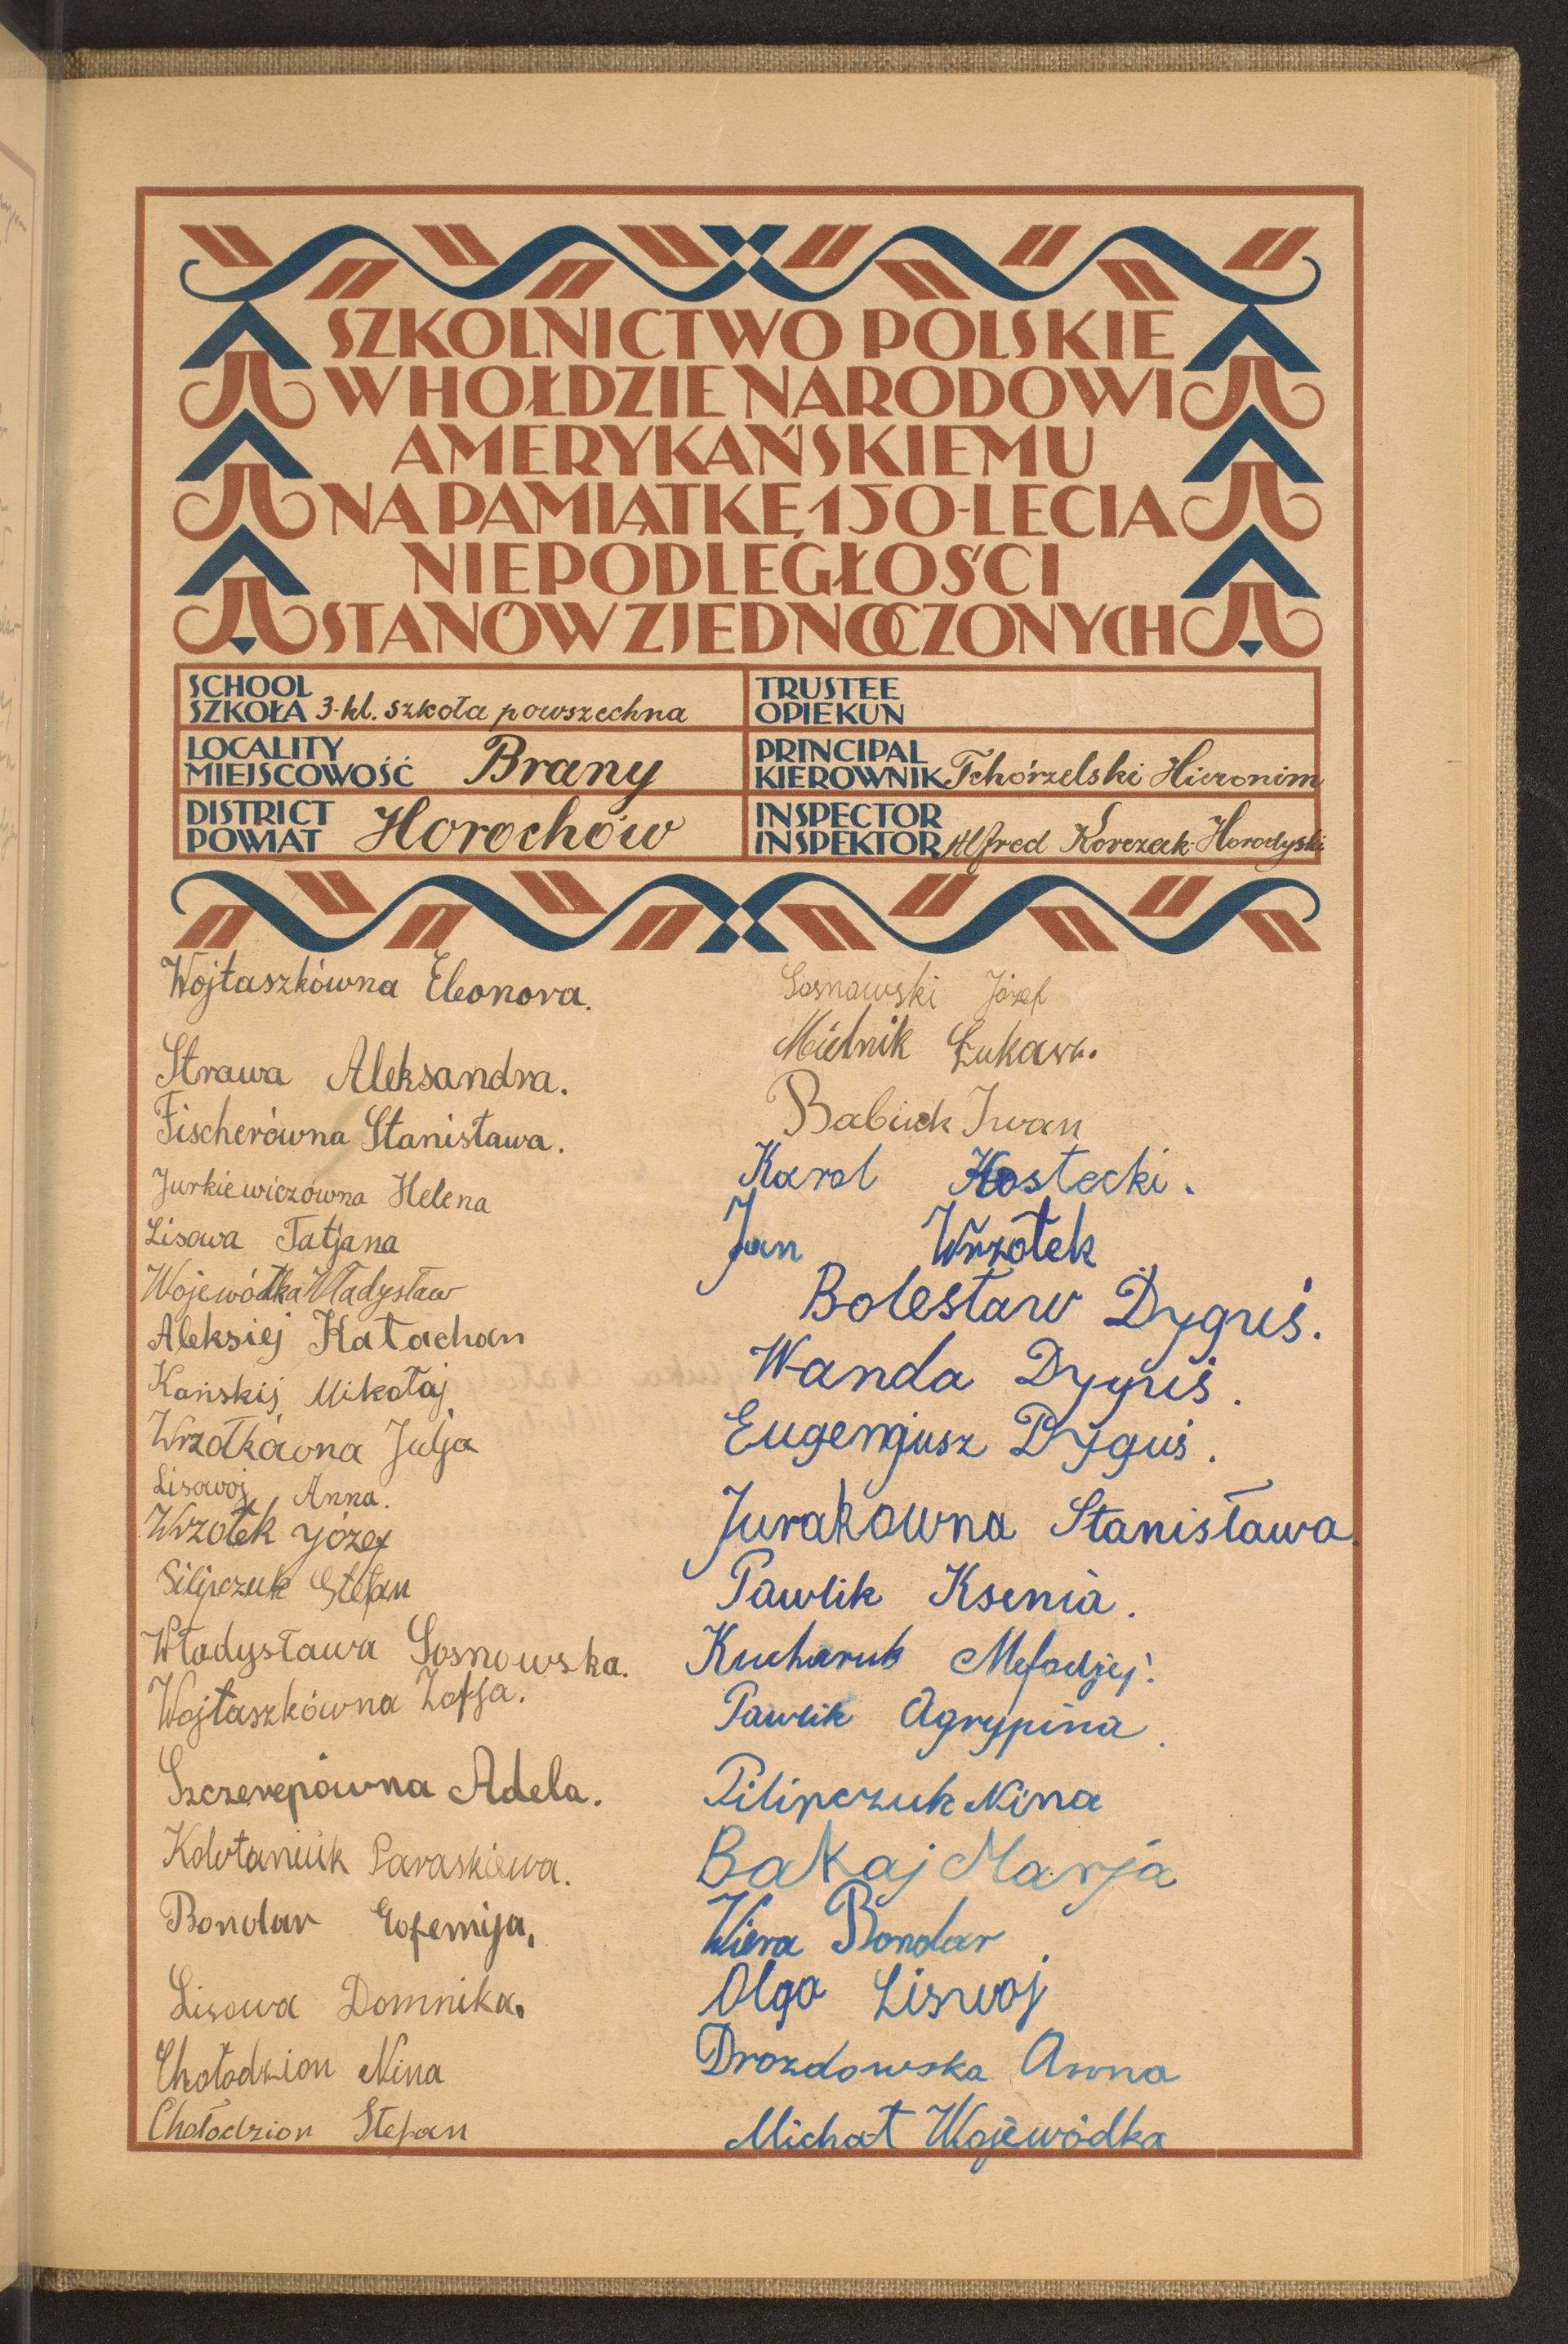 SZKOLNICTWO POLSKIE
W HOŁDZIE NARODOWI
AMERYKAŃSKIEMU
NA PAMIĄTKĘ 150-LECIA
NIEPODLEGŁOŚCI
STANÓW ZJEDNOCZONYCH
SCHOOL
SZKOŁA 3-kl. szkoła powszechna
TRUSTEE
OPIEKUN
LOCALITY
MIEJSCOWOŚĆ Brany
PRINCIPAL
KIEROWNIK Tchórzelski Hieronim
DISTRICT
POWIAT Horochów
INSPECTOR
INSPEKTOR Alfred Korczak-Horodyski
Wojtaszkówna Eleonora.
Strawa Aleksandra.
Fischerówna Stanisława.
Jurkiewiczówna Helena
Lisowa Tatjana
Wojewódka Władysław
Aleksiej Kałachan
Kańskij Mikołaj
Wrzołkówna Julja
Lisowoj Anna.
Wrzołek Józef
Silipczuk Stefan
Władysława Sosnowska.
Wojtaszkówna Zofja.
Szczerepówna Adela.
Paraskiewa.
Bondar Eofemija.
Lisowa Domnika.
Chołodzion Nina
Chołodzion Stefan
Sosnowski Józef
Mielnik Łukasz.
Babiuk Iwan
Karol Kostecki.
Jan Wrzołek
Bolesław Dyguś.
Wanda Dyguś.
Eugenjusz Dyguś.
Jurakówna Stanisława.
Pawlik Ksenia.
Kucharuk Mefodjej.
Pawlik Agrypina.
Pilipczuk Nina
Bakaj Marja
Wiera Bondar
Olga Liswoj
Drozdowska Anna
Michał Wojewódka